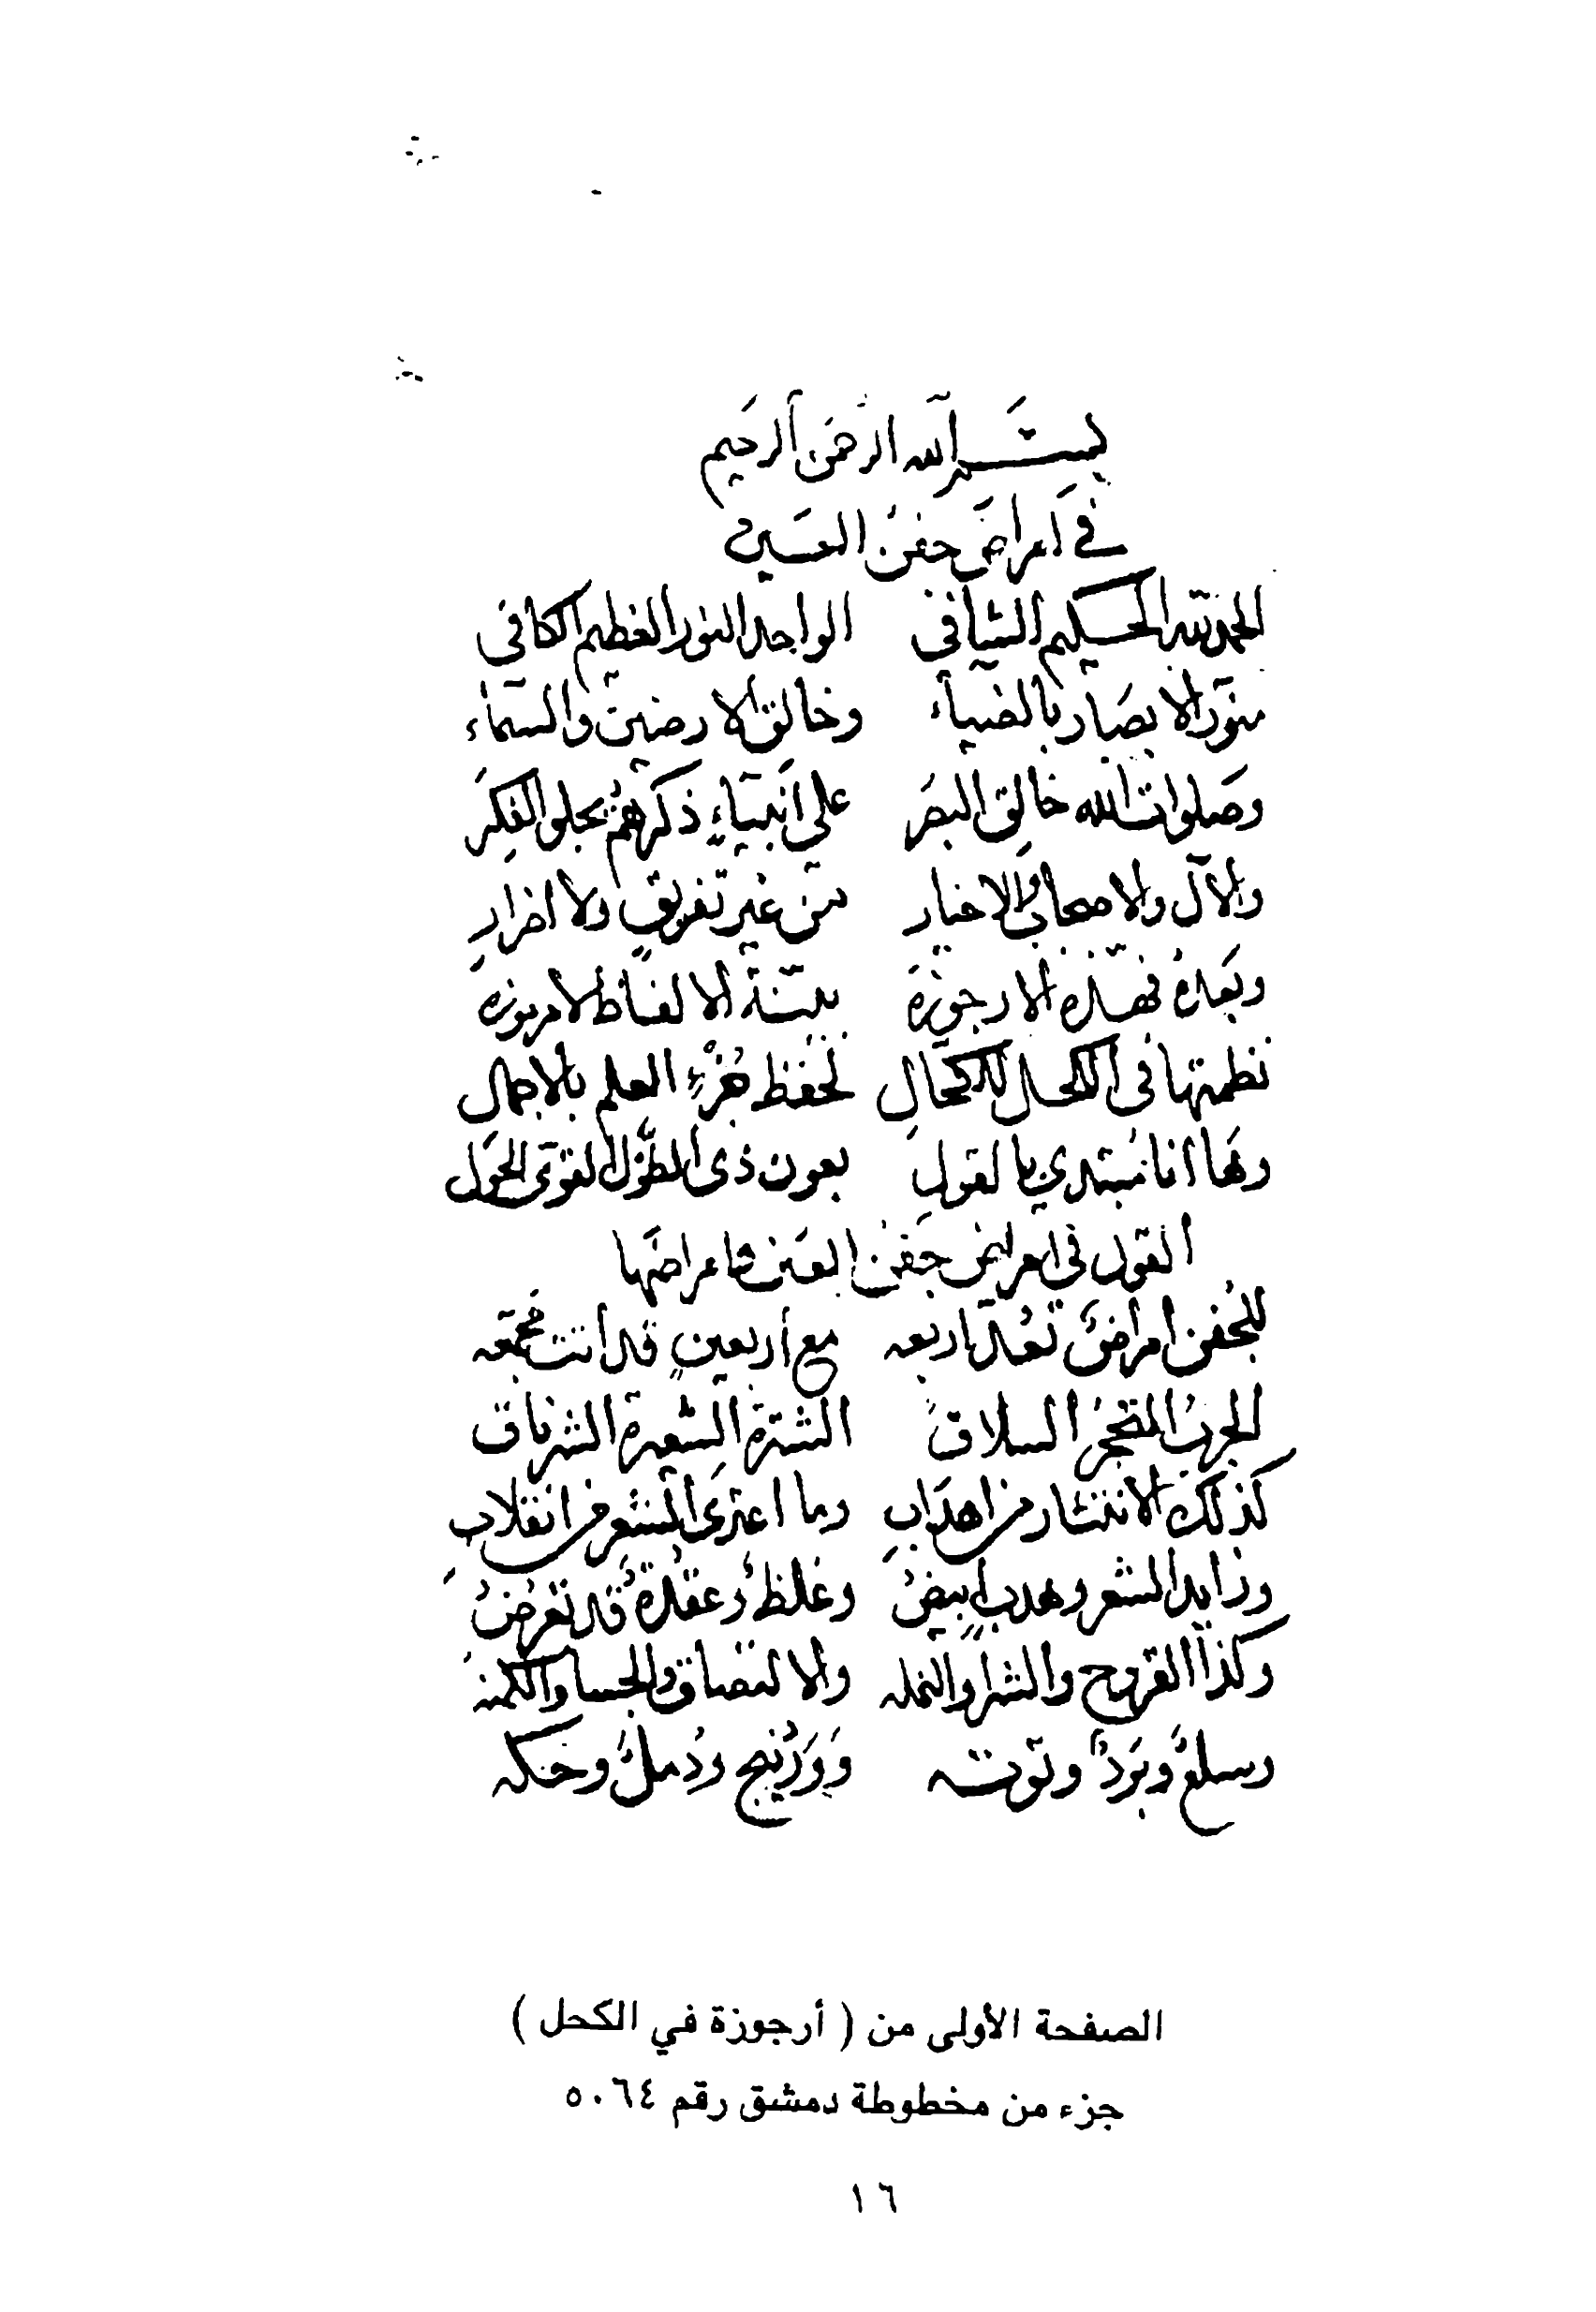 بسم الله الرحمن الرحيم
في امراض جفن العين
الحمد لله الحكيم الشافي الواجد النور العظيم الكافي
منور الابصار بالضياء وخالق الارضين والسماء
وصلوات الله خالق البصر على انبياء ذكرهم يجلو الفكر
والآل والاصحاب الاخيار من غير تفريق ولا اضرار
وبعد فهذه الارجوزة بينة الالفاظ لا مرموزه
نظمتها في الكحل للكحال لحفظ جزء العلم بالاجمال
وها انا مبتدي بالقول بعون ذى الطول القوى الحول
القول في امراض جفن العين اعراضها
للجفن امراض تعد اربعه مع أربعين قد أتت مجتمعه
الجرب التحجر السلاق الشترة الشعيرة الشرناق
كذلك الانتثار من اهداب وما اعترى الشعر من انقلاب
وزايد الشعر وهدب ابيض وغلظ وعقدة قد تعرض
وكذا القروح والشرا والنمله والالتصاق والجسا والكمنة
وسلع وبرد وتوته ووردينج ودمل وحكه
الصفحة الأولى من ( أرجوزة في الكحل )
جزء من مخطوطة دمشق رقم ٥٠٦٤
١٦